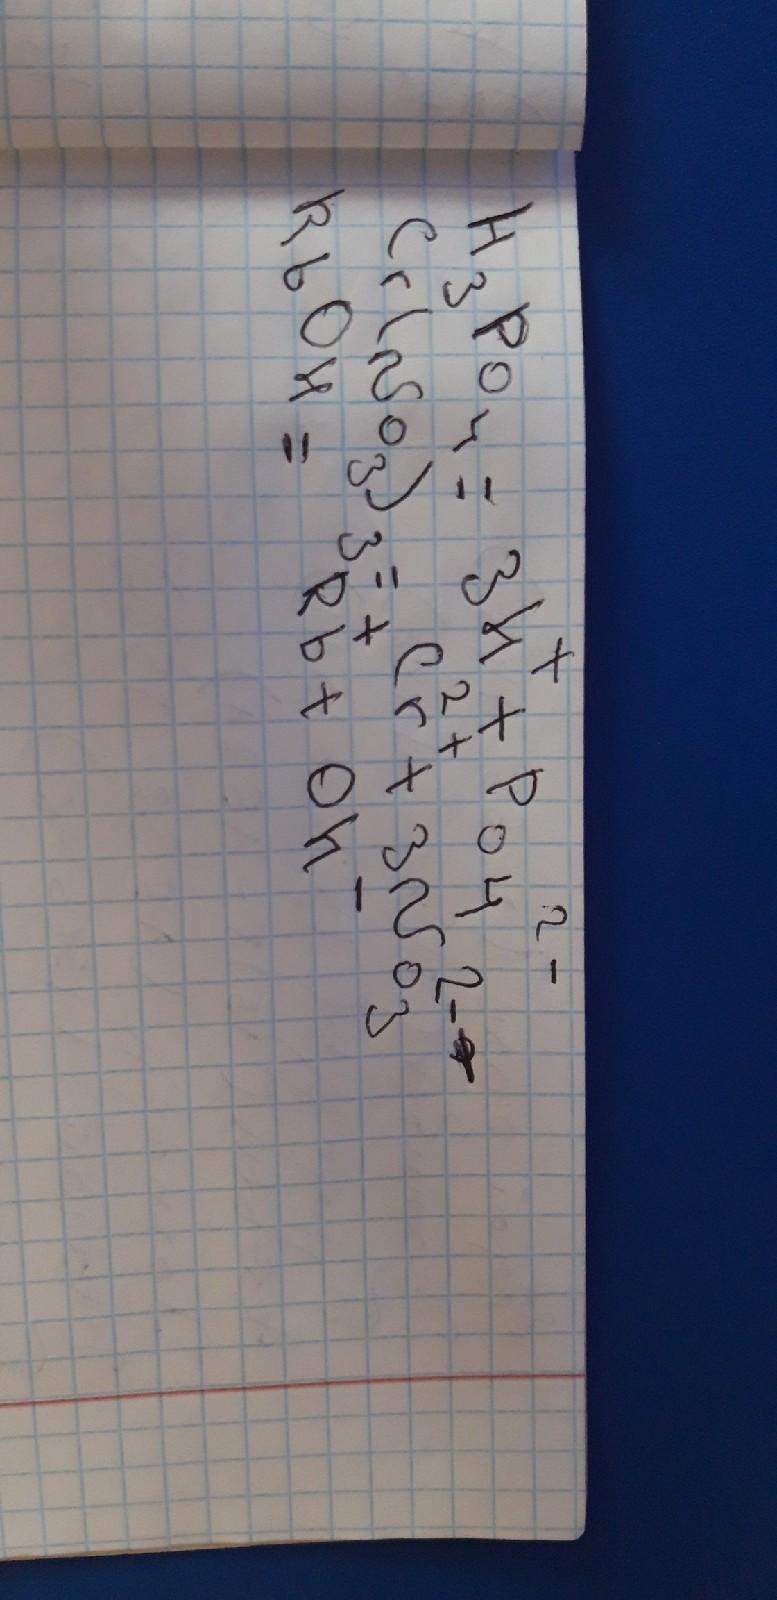 H3PO4 = 3H+ + PO4 2-
Cr(NO3)3 = Cr2+ + 3NO3 2-
RbOH = Rb+ + OH-